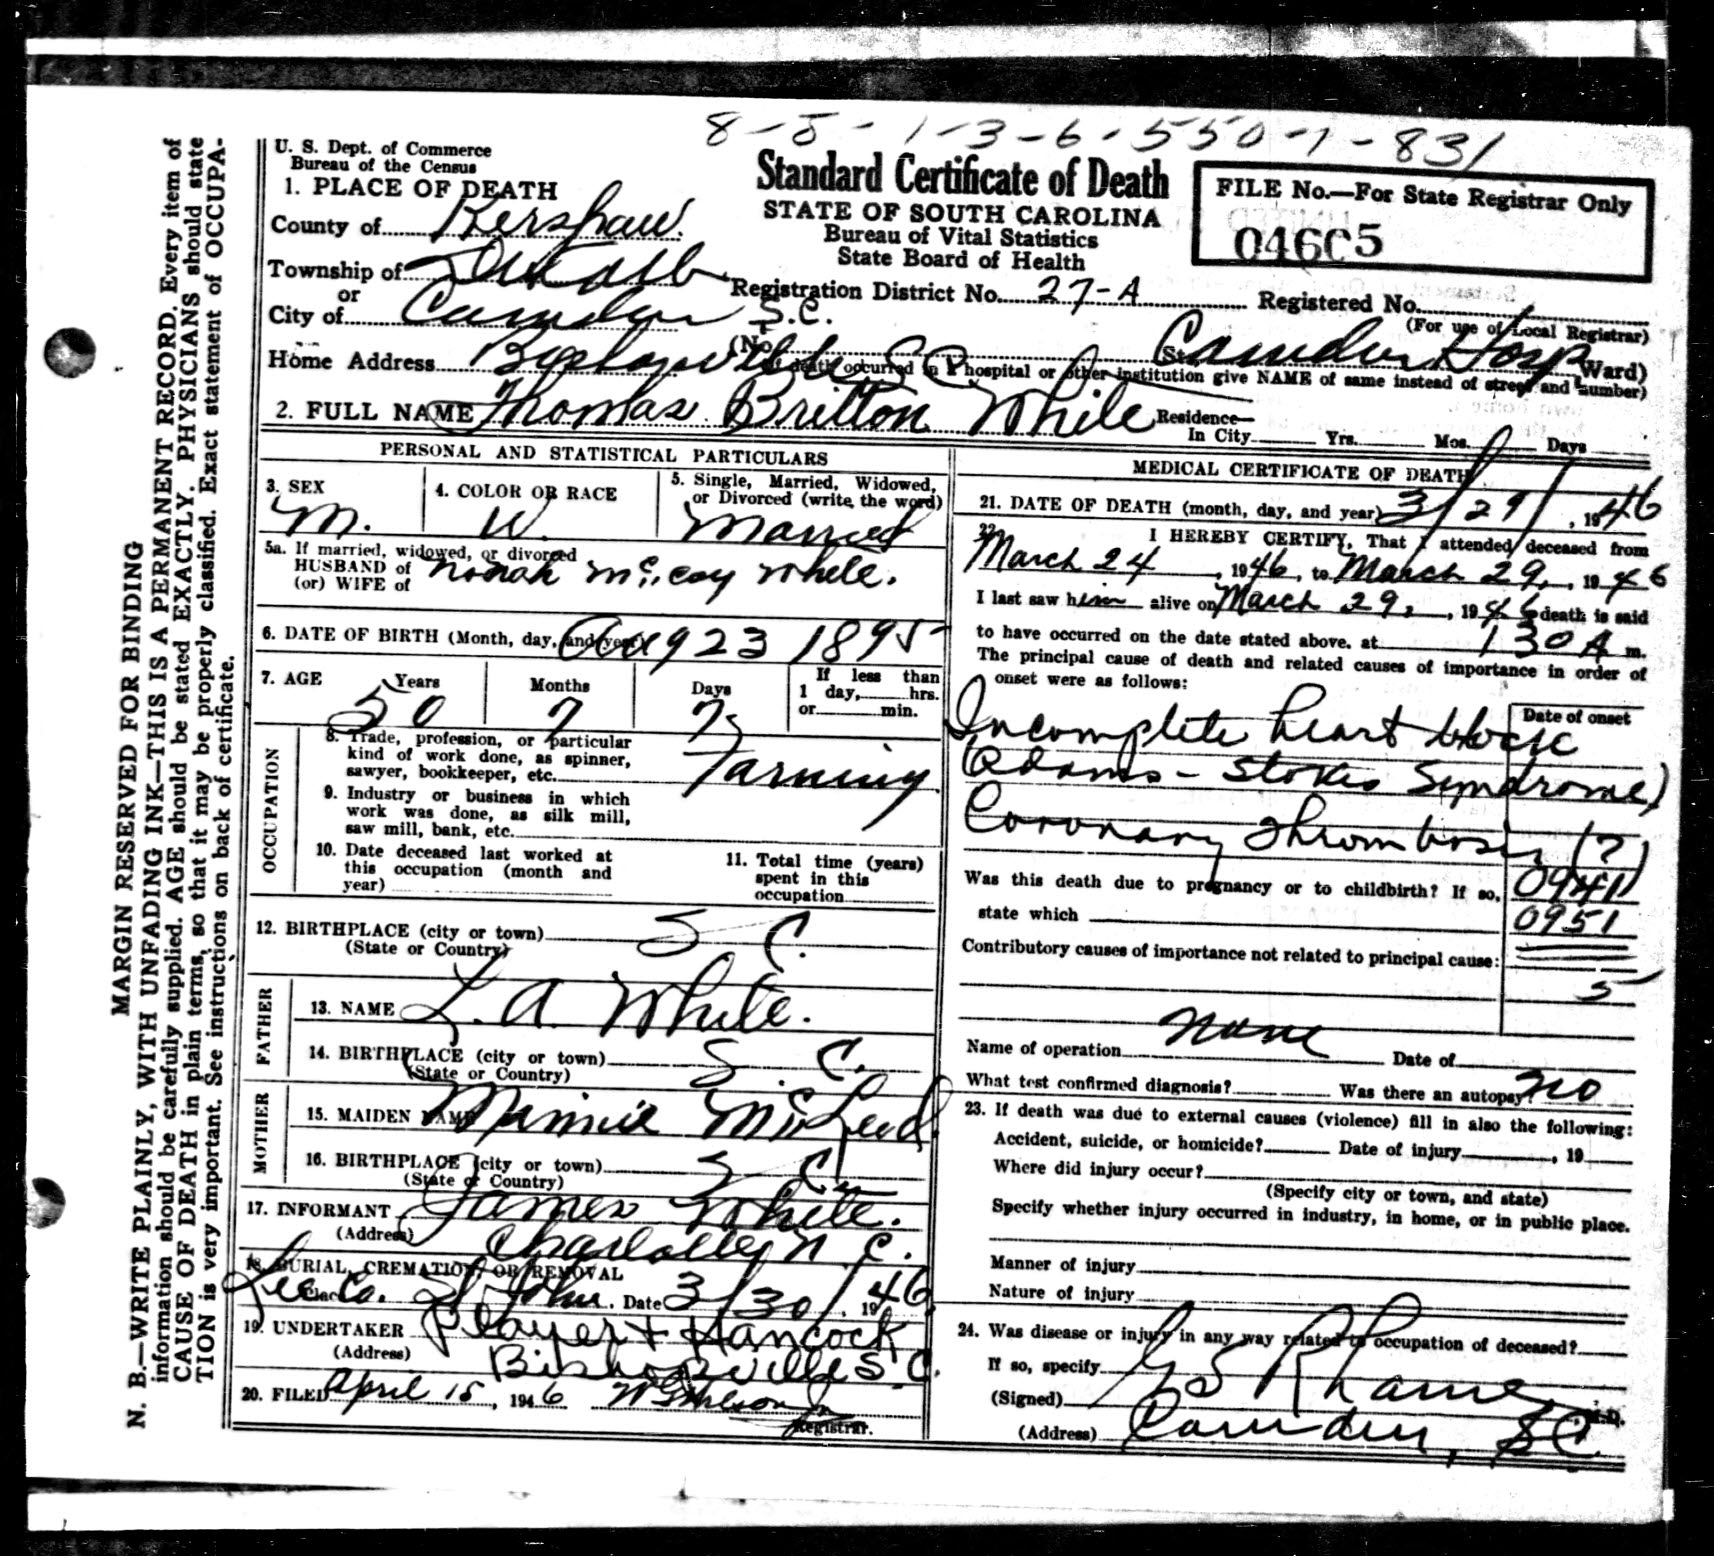 8-5-1-3-6-550-1-831
U. S. Dept. of Commerce
Bureau of the Census
Standard Certificate of Death
STATE OF SOUTH CAROLINA
Bureau of Vital Statistics
State Board of Health
FILE No.—For State Registrar Only
04605
1. PLACE OF DEATH
County of Kershaw.
Township of DeKalb
or
City of Camden S.C.
Registration District No. 27-A Registered No.
(For use of Local Registrar)
(No. St. Camden Hosp Ward)
Home Address Bishopville S C
(If death occurred in a hospital or other institution give NAME of same instead of street and number)
2. FULL NAME Thomas Britton White
Residence—
In City Yrs. Mos. Days
PERSONAL AND STATISTICAL PARTICULARS
3. SEX
M.
4. COLOR OR RACE
W.
5. Single, Married, Widowed,
or Divorced (write the word)
Married
5a. If married, widowed, or divorced
HUSBAND of
(or) WIFE of
Nonah McCoy White.
6. DATE OF BIRTH (Month, day, and year) Aug 23 1895
7. AGE Years Months Days
50 7 7
If less than
1 day, hrs.
or min.
OCCUPATION
8. Trade, profession, or particular
kind of work done, as spinner,
sawyer, bookkeeper, etc. Farming
9. Industry or business in which
work was done, as silk mill,
saw mill, bank, etc.
10. Date deceased last worked at
this occupation (month and
year)
11. Total time (years)
spent in this
occupation
12. BIRTHPLACE (city or town) S C.
(State or Country)
FATHER
13. NAME L. A. White.
14. BIRTHPLACE (city or town) S. C.
(State or Country)
MOTHER
15. MAIDEN NAME Minnie McLeod.
16. BIRTHPLACE (city or town) S C.
(State or Country)
17. INFORMANT James White.
(Address) Charlotte, N. C.
18. BURIAL, CREMATION, OR REMOVAL
Place Lee Co. St John. Date 3/30/, 1946
19. UNDERTAKER Player + Hancock
(Address) Bishopville S. C.
20. FILED April 15, 1946
Registrar.
MEDICAL CERTIFICATE OF DEATH
21. DATE OF DEATH (month, day, and year) 3/29/, 1946
22. I HEREBY CERTIFY, That I attended deceased from
March 24, 1946, to March 29, 1946
I last saw him alive on March 29, 1946 death is said
to have occurred on the date stated above, at 130 A m.
The principal cause of death and related causes of importance in order of
onset were as follows:
Date of onset
Incomplete heart block
(Adams-Stokes Syndrome)
Coronary Thrombosis (?)
Was this death due to pregnancy or to childbirth? If so,
0941
state which
0951
Contributory causes of importance not related to principal cause:
5
Name of operation None Date of
What test confirmed diagnosis? Was there an autopsy? no
23. If death was due to external causes (violence) fill in also the following:
Accident, suicide, or homicide? Date of injury, 19
Where did injury occur?
(Specify city or town, and state)
Specify whether injury occurred in industry, in home, or in public place.
Manner of injury
Nature of injury
24. Was disease or injury in any way related to occupation of deceased?
If so, specify
(Signed) Rhame M.D.
(Address) Camden, SC
MARGIN RESERVED FOR BINDING
N. B.—WRITE PLAINLY, WITH UNFADING INK—THIS IS A PERMANENT RECORD. Every item of
information should be carefully supplied. AGE should be stated EXACTLY. PHYSICIANS should state
CAUSE OF DEATH in plain terms, so that it may be properly classified. Exact statement of OCCUPA-
TION is very important. See instructions on back of certificate.